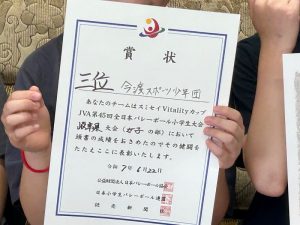 賞状
三位 今渡スポーツ少年団
あなたのチームはスミセイVitalityカップ
JVA第45回全日本バレーボール小学生大会
岐阜県大会(女子の部)において
頭書の成績をおさめたのでその健闘を
たたえここに表彰いたします。
令和7年6月22日
公益財団法人日本バレーボール協会
日本小学生バレーボール連盟
読売新聞社